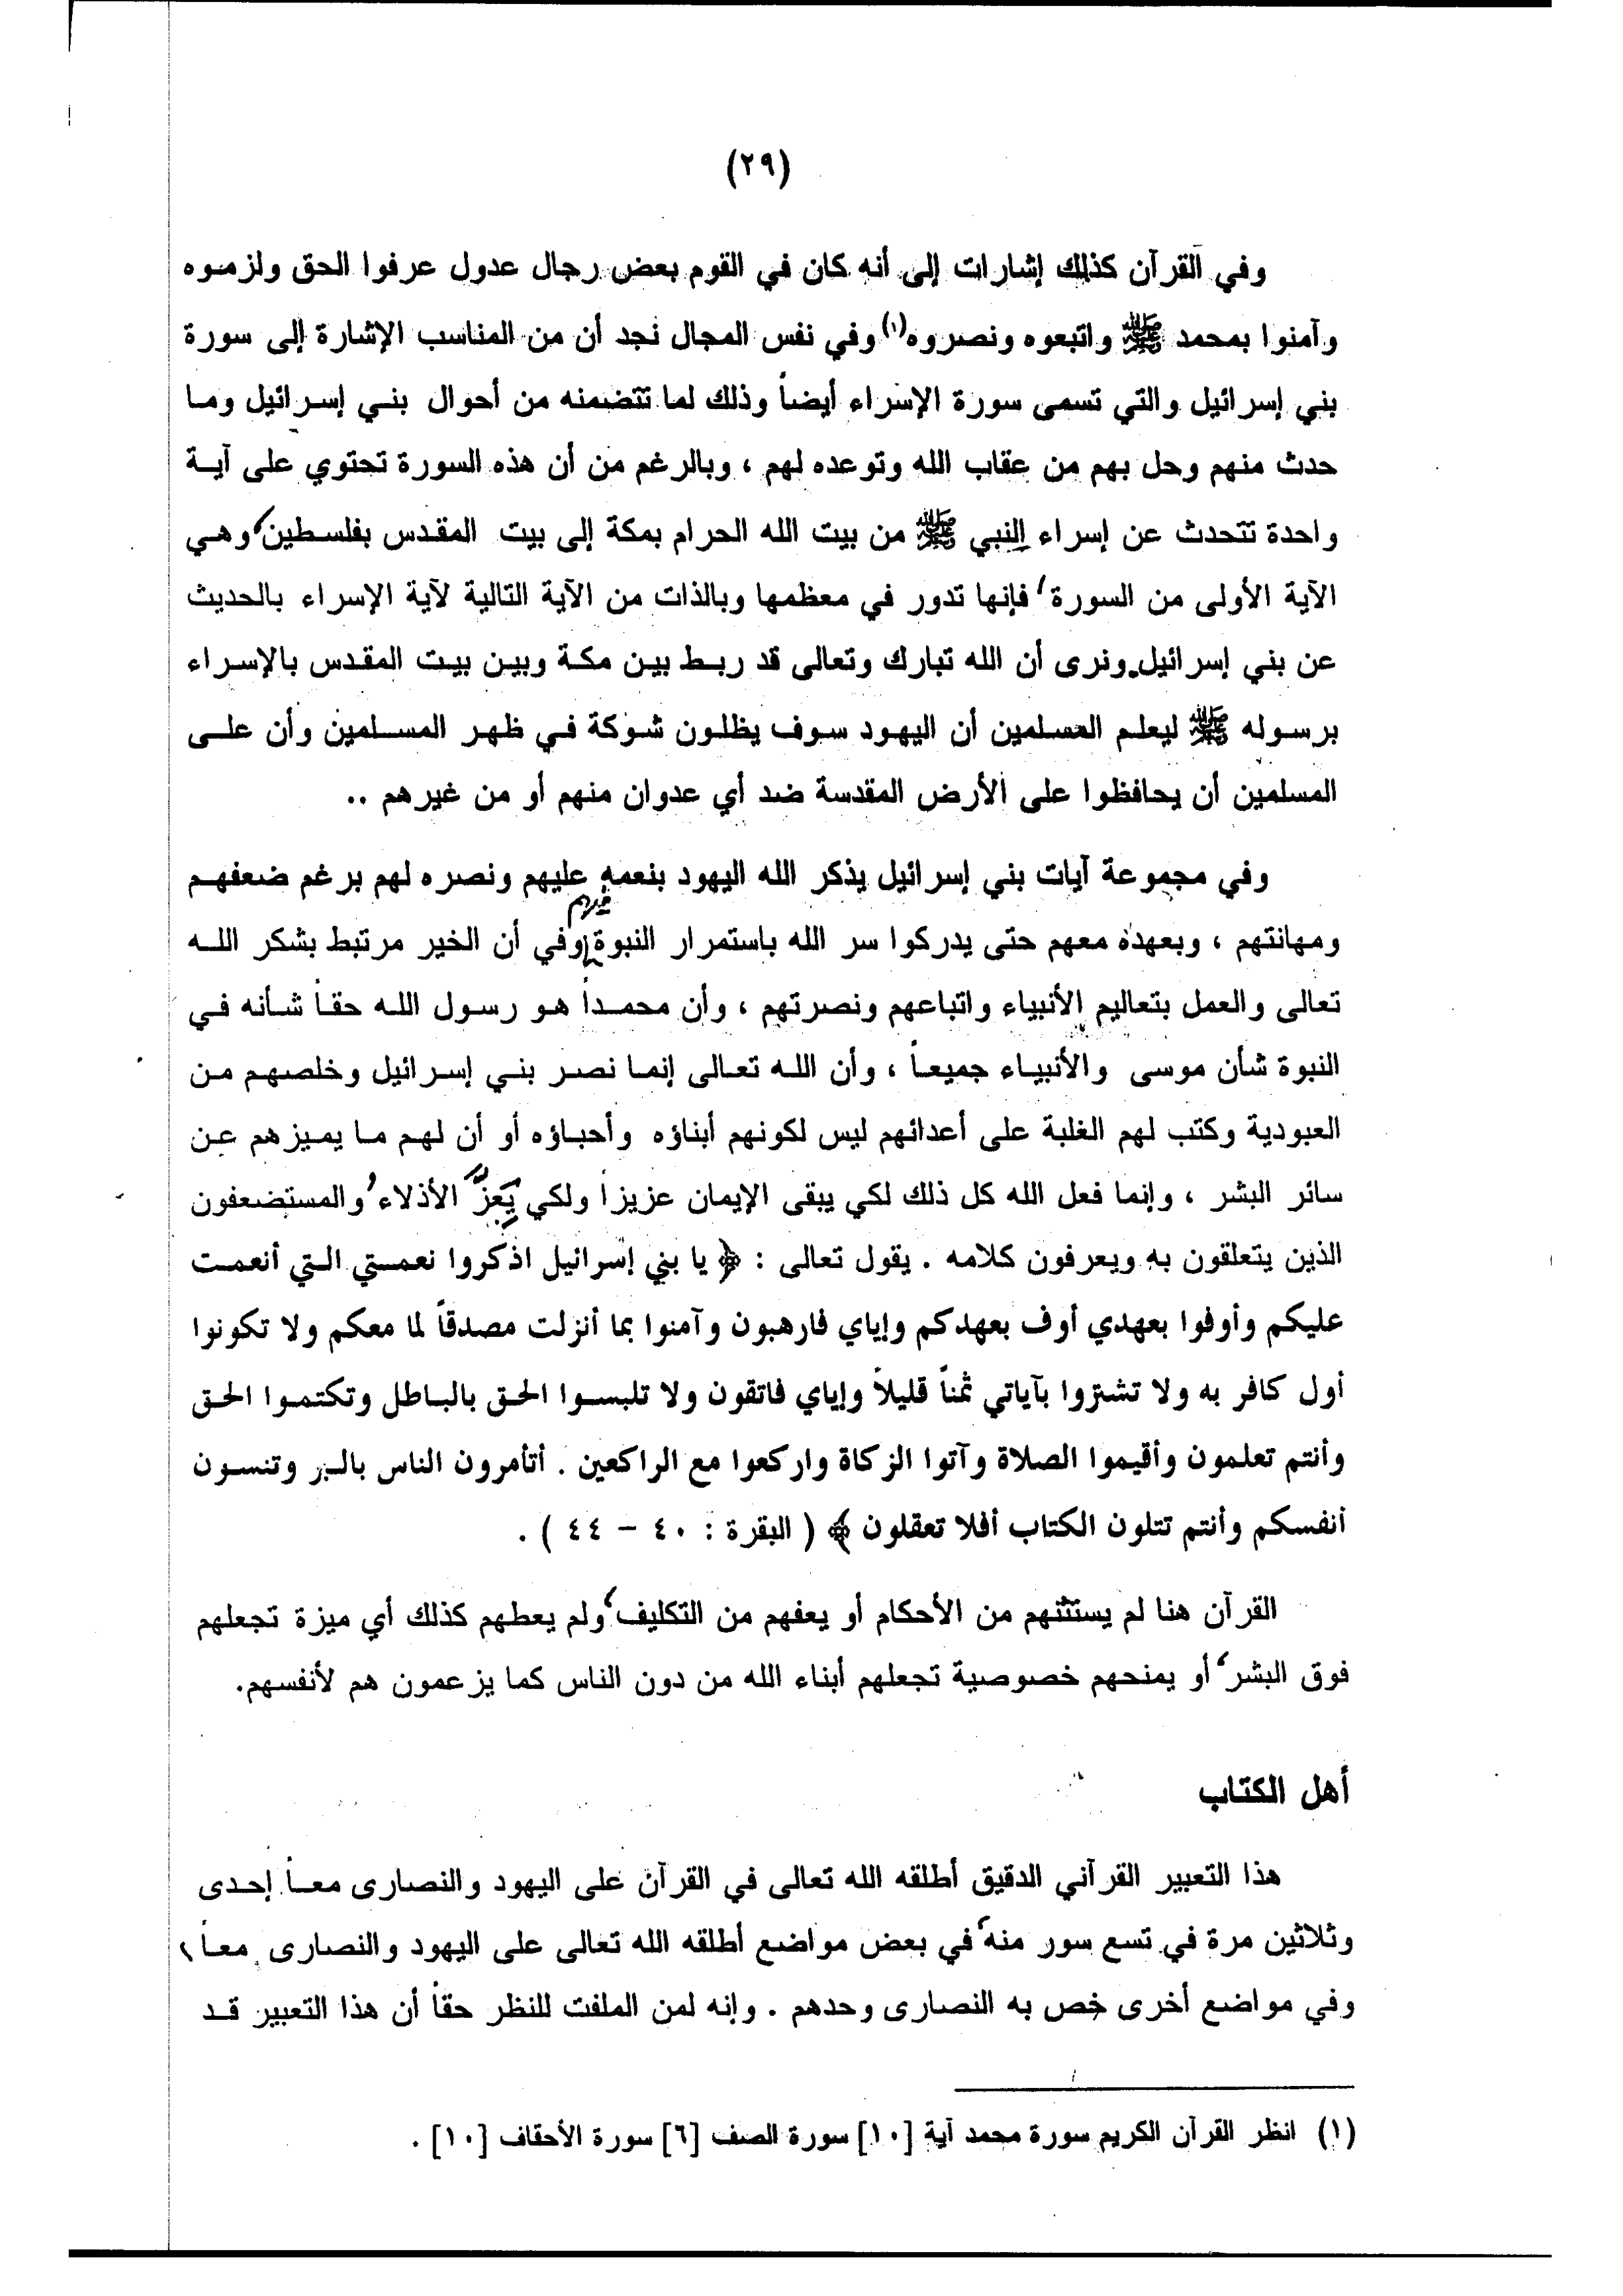 (٢٩)
وفي القرآن كذلك إشارات إلى أنه كان في القوم بعض رجال عدول عرفوا الحق ولزموه
وآمنوا بمحمد ﷺ واتبعوه ونصروه(١) وفي نفس المجال نجد أن من المناسب الإشارة إلى سورة
بني إسرائيل والتي تسمى سورة الإسراء أيضاً وذلك لما تتضمنه من أحوال بني إسرائيل وما
حدث منهم وحل بهم من عقاب الله وتوعده لهم ، وبالرغم من أن هذه السورة تحتوي على آية
واحدة تتحدث عن إسراء النبي ﷺ من بيت الله الحرام بمكة إلى بيت المقدس بفلسطين، وهي
الآية الأولى من السورة، فإنها تدور في معظمها وبالذات من الآية التالية لآية الإسراء بالحديث
عن بني إسرائيل. ونرى أن الله تبارك وتعالى قد ربط بين مكة وبين بيت المقدس بالإسراء
برسوله ﷺ ليعلم المسلمين أن اليهود سوف يظلون شوكة في ظهر المسلمين وأن على
المسلمين أن يحافظوا على الأرض المقدسة ضد أي عدوان منهم أو من غيرهم ..
وفي مجموعة آيات بني إسرائيل يذكر الله اليهود بنعمه عليهم ونصره لهم برغم ضعفهم
ومهانتهم ، وبعهده معهم حتى يدركوا سر الله باستمرار النبوة فيهم وفي أن الخير مرتبط بشكر الله
تعالى والعمل بتعاليم الأنبياء واتباعهم ونصرتهم ، وأن محمداً هو رسول الله حقاً شأنه في
النبوة شأن موسى والأنبياء جميعاً ، وأن الله تعالى إنما نصر بني إسرائيل وخلصهم من
العبودية وكتب لهم الغلبة على أعدائهم ليس لكونهم أبناؤه وأحباؤه أو أن لهم ما يميزهم عن
سائر البشر ، وإنما فعل الله كل ذلك لكي يبقى الإيمان عزيزاً ولكي يَعِزَّ الأذلاء، والمستضعفون
الذين يتعلقون به ويعرفون كلامه . يقول تعالى : ﴿ يا بني إسرائيل اذكروا نعمتي التي أنعمت
عليكم وأوفوا بعهدي أوف بعهدكم وإياي فارهبون وآمنوا بما أنزلت مصدقاً لما معكم ولا تكونوا
أول كافر به ولا تشتروا بآياتي ثمناً قليلاً وإياي فاتقون ولا تلبسوا الحق بالباطل وتكتموا الحق
وأنتم تعلمون وأقيموا الصلاة وآتوا الزكاة واركعوا مع الراكعين . أتأمرون الناس بالبر وتنسون
أنفسكم وأنتم تتلون الكتاب أفلا تعقلون ﴾ ( البقرة : ٤٠ – ٤٤ ) .
القرآن هنا لم يستثنهم من الأحكام أو يعفهم من التكليف، ولم يعطهم كذلك أي ميزة تجعلهم
فوق البشر، أو يمنحهم خصوصية تجعلهم أبناء الله من دون الناس كما يزعمون هم لأنفسهم.
أهل الكتاب
هذا التعبير القرآني الدقيق أطلقه الله تعالى في القرآن على اليهود والنصارى معاً إحدى
وثلاثين مرة في تسع سور منه، في بعض مواضع أطلقه الله تعالى على اليهود والنصارى معاً،
وفي مواضع أخرى خص به النصارى وحدهم . وإنه لمن الملفت للنظر حقاً أن هذا التعبير قد
(١) انظر القرآن الكريم سورة محمد آية [١٠] سورة الصف [٦] سورة الأحقاف [١٠] .